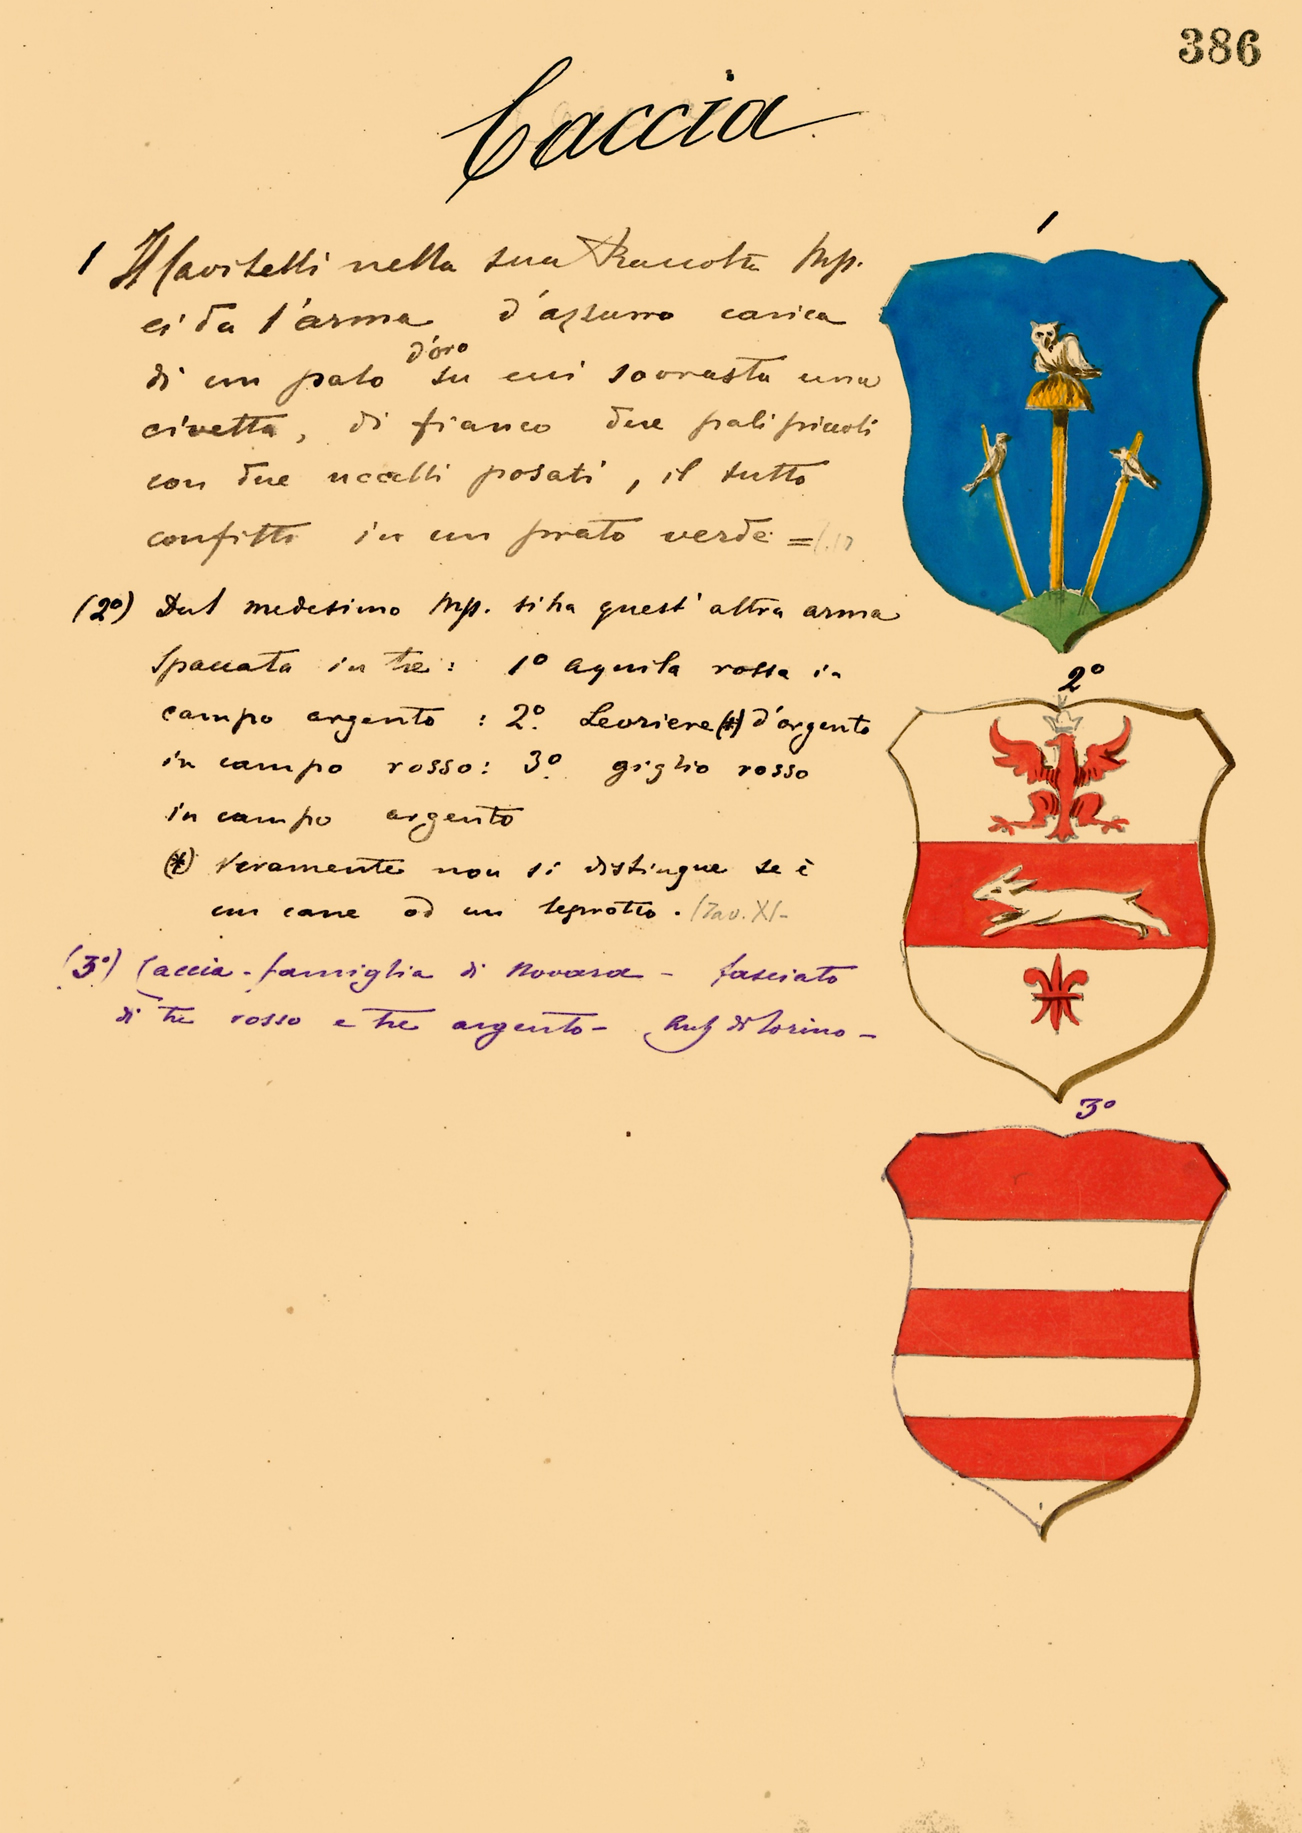 386
Caccia
1
1 Il Cavitelli nella sua Raccolta Mp.
ci da l'arma d'azzurro carica
d'oro
di un palo su cui sovrasta una
civetta, di fianco due pali piccoli
con due uccelli posati, il tutto
confitti in un prato verde =
(2º) Dal medesimo Mp. si ha quest'altra arma
Spaccata in tre: 1º aquila rossa in
campo argento : 2º. Levriere (*) d'argento
in campo rosso: 3º. giglio rosso
in campo argento
(*) Veramente non si distingue se è
un cane od un leprotto. (Tav. XI-
(3º) Caccia - famiglia di Novara - fasciato
di tre rosso e tre argento - di Torino -
2º
3º